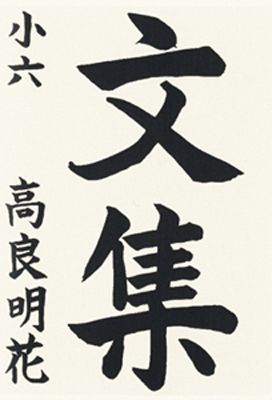 文集
小六 高良明花